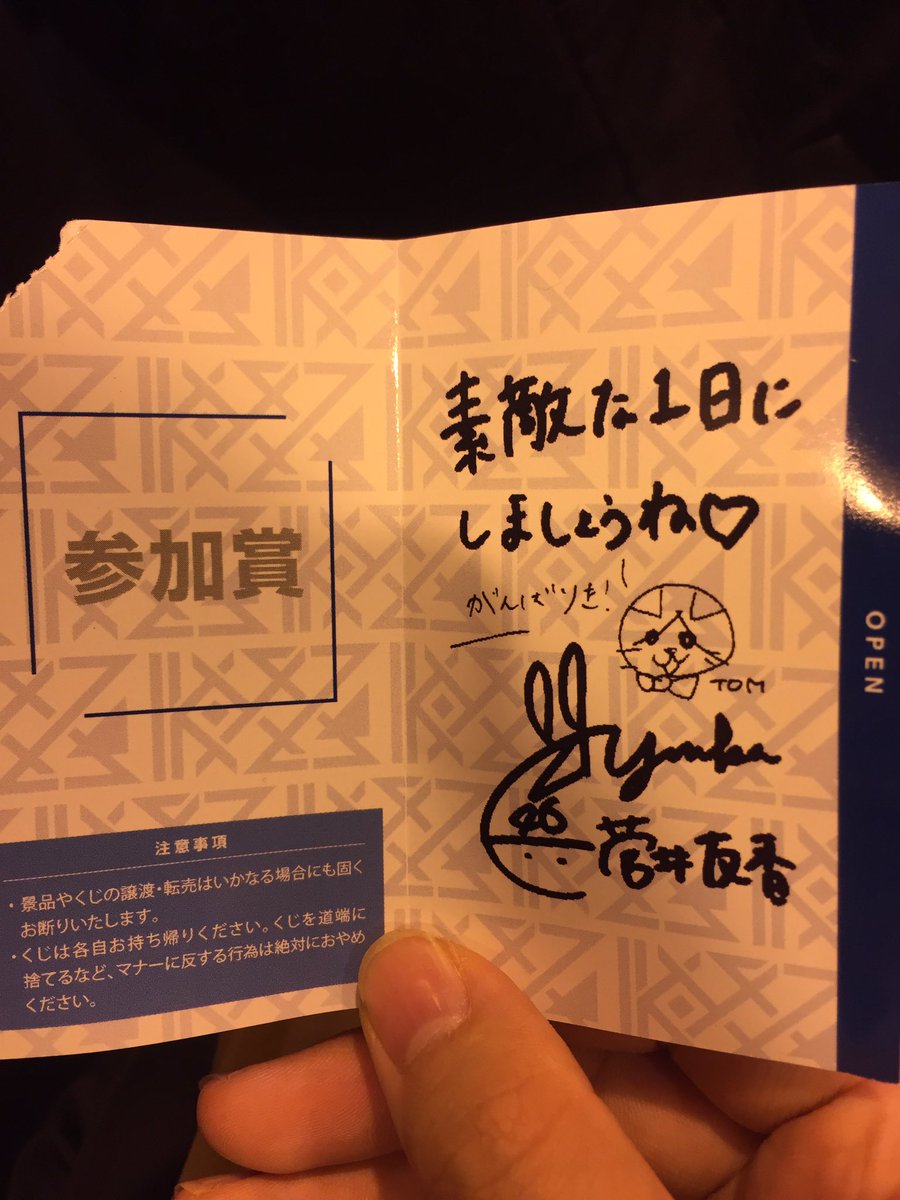 参加賞
注意事項
・景品やくじの譲渡・転売はいかなる場合にも固く
お断りいたします。
・くじは各自お持ち帰りください。くじを道端に
捨てるなど、マナーに反する行為は絶対におやめ
ください。
素敵な1日に
しましょうね♡
がんばりき!
TOM
Yuuka
46
菅井友香
OPEN